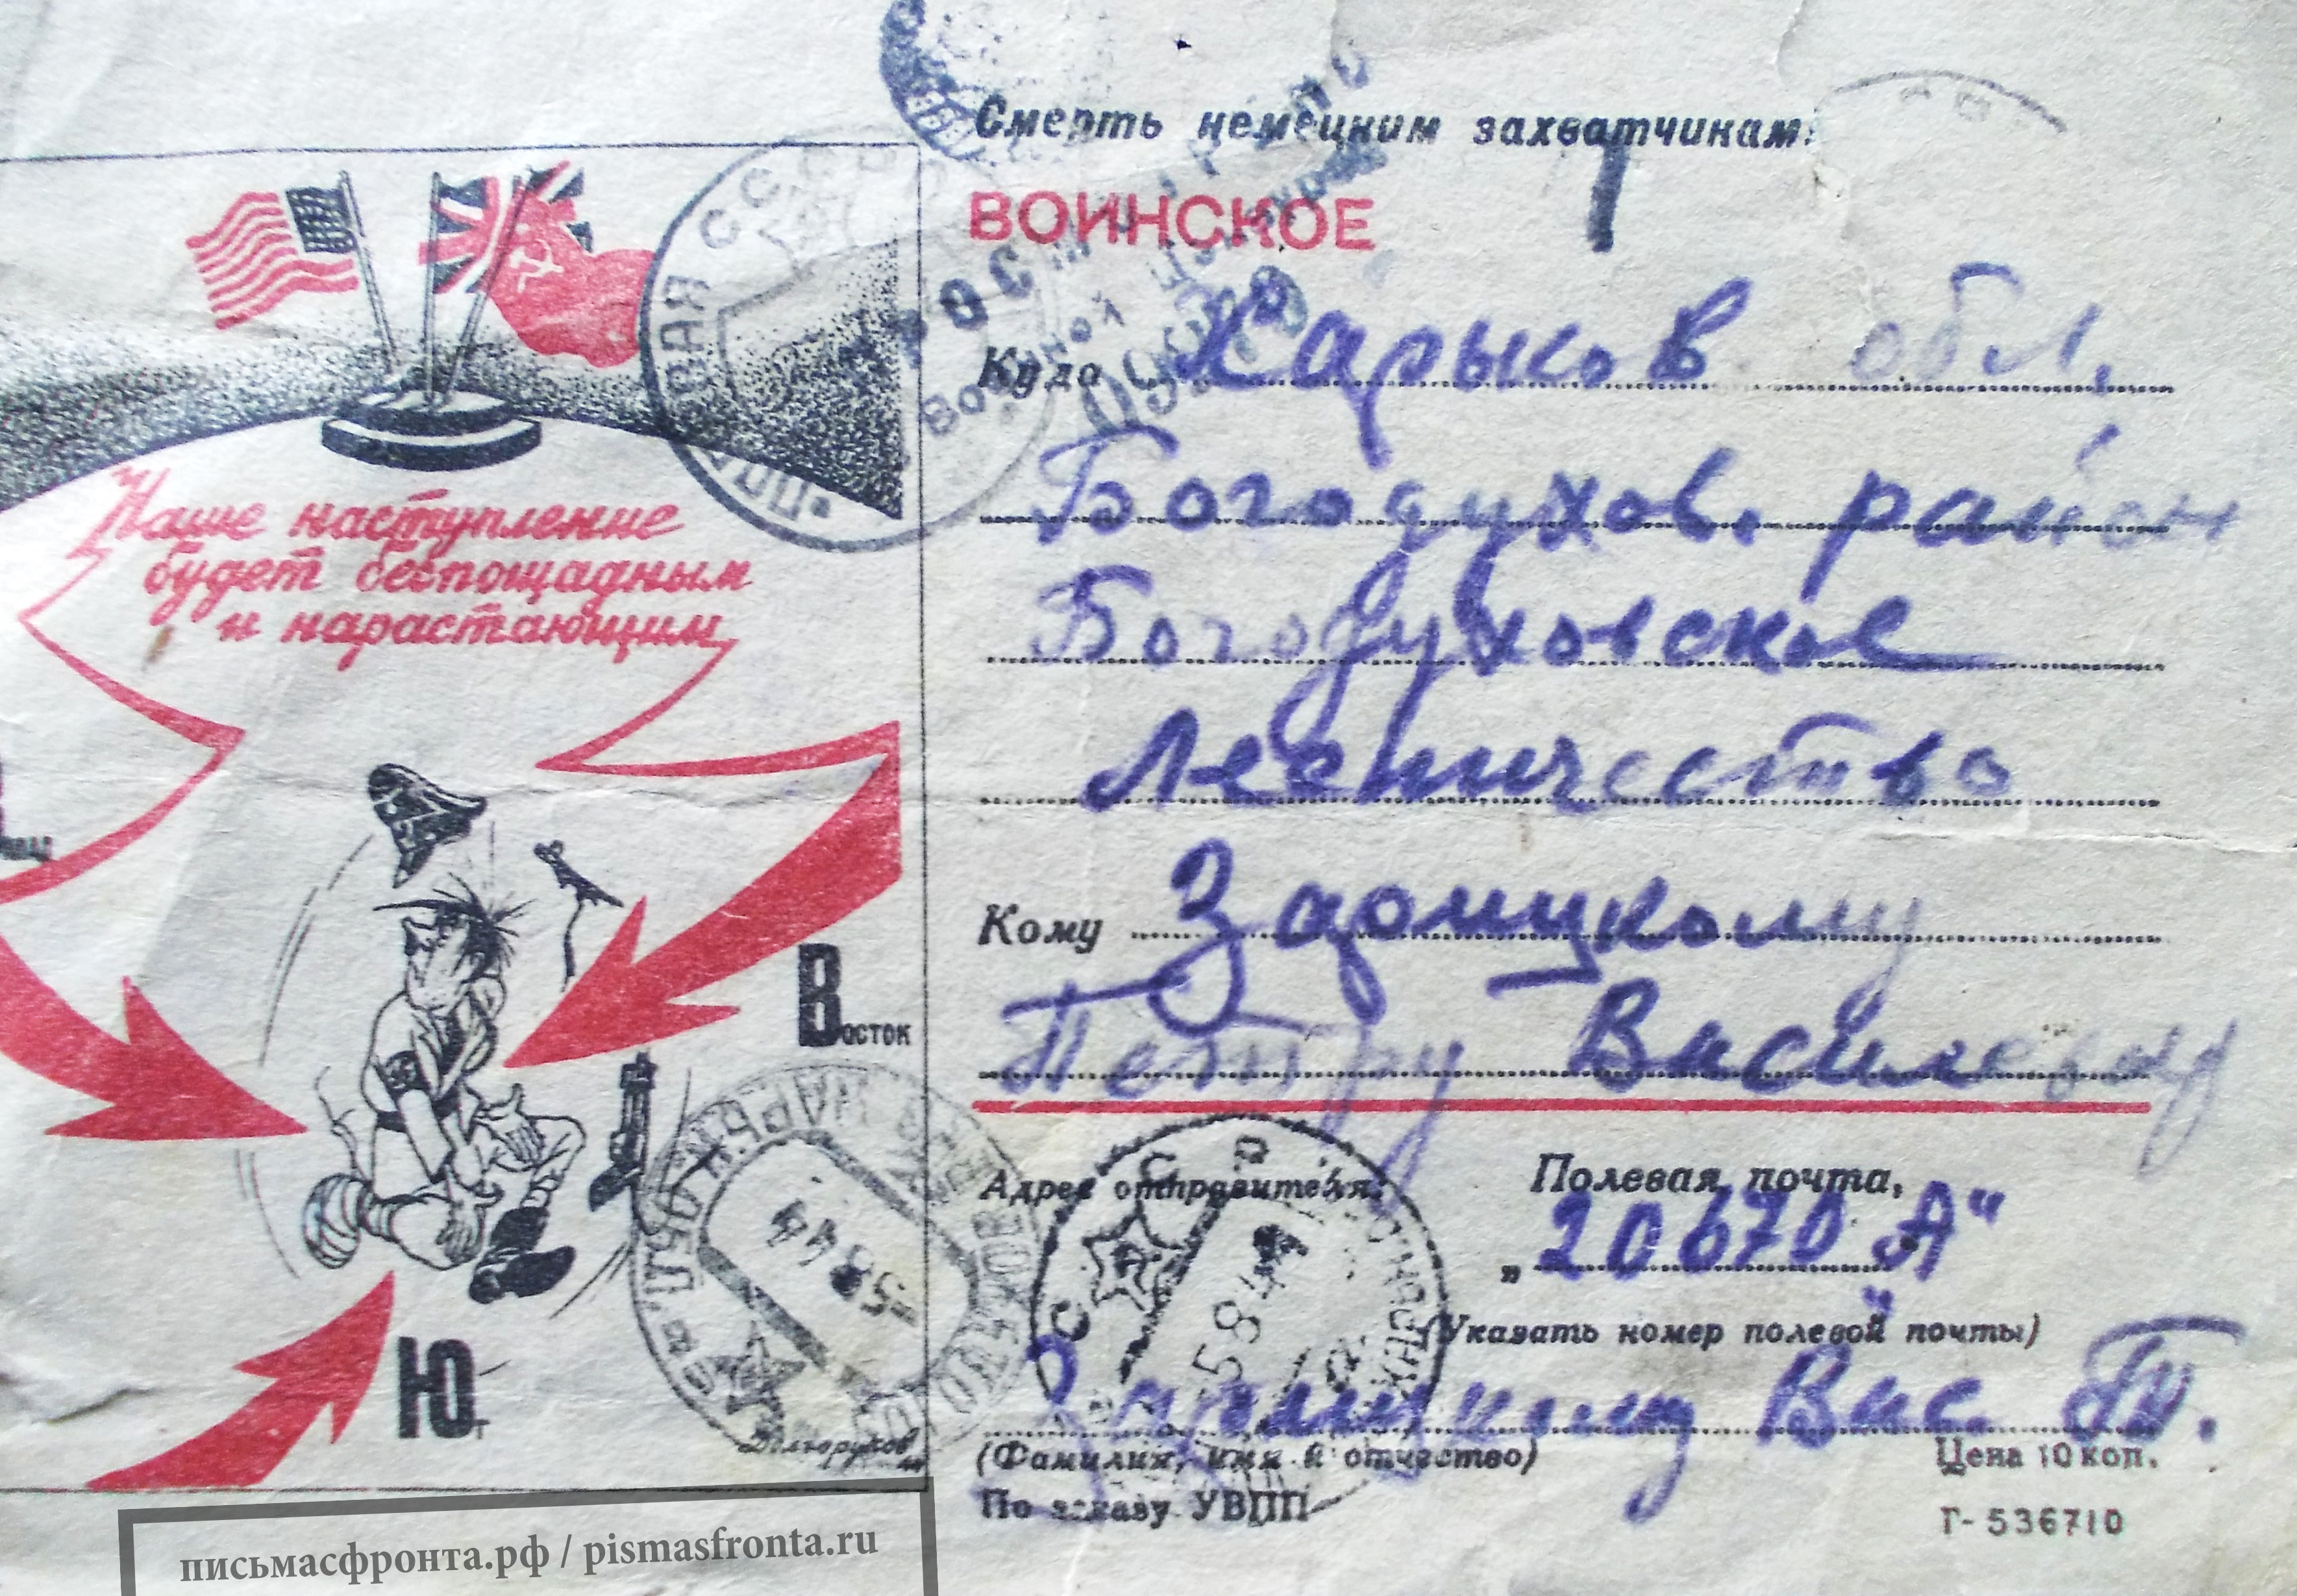 Смерть немецким захватчикам!
ВОИНСКОЕ
Наше наступление
будет беспощадным
и нарастающим
Восток
Юг
Долгоруков
Куда Харьков обл.
Богодухов. район
Богодуховское
лесничество
Кому Задонцкому
Петру Василевичу
Адрес отправителя: Полевая почта,
„20670 А"
(Указать номер полевой почты)
Задонцкому Вас. П.
(Фамилия, имя и отчество)
Цена 10 коп.
По заказу УВПП
Г-536710
-5 8 44
5 8 44
письмасфронта.рф / pismasfronta.ru